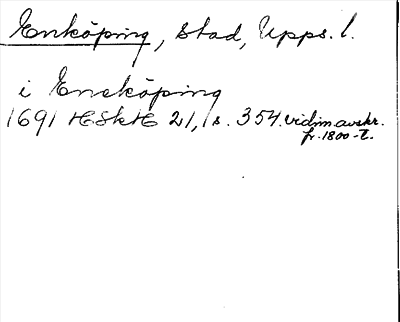 Enköping, stad, Upps. l.
i Eneköping
1691 HSH 21, s. 354. vidim. avskr.
fr. 1800-t.